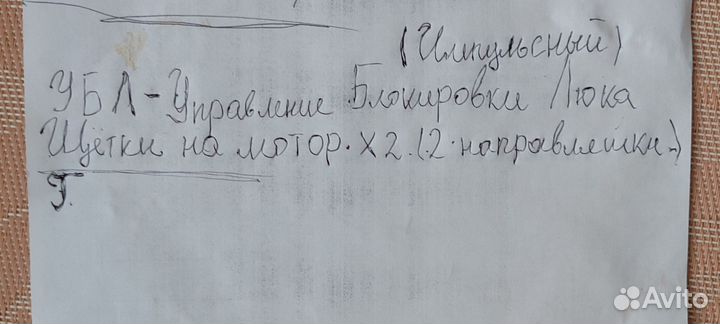 (Импульсный)
УБЛ - Управление Блокировки Люка
Щётки на мотор. х 2. (2. направляшки.)
Г.
Avito